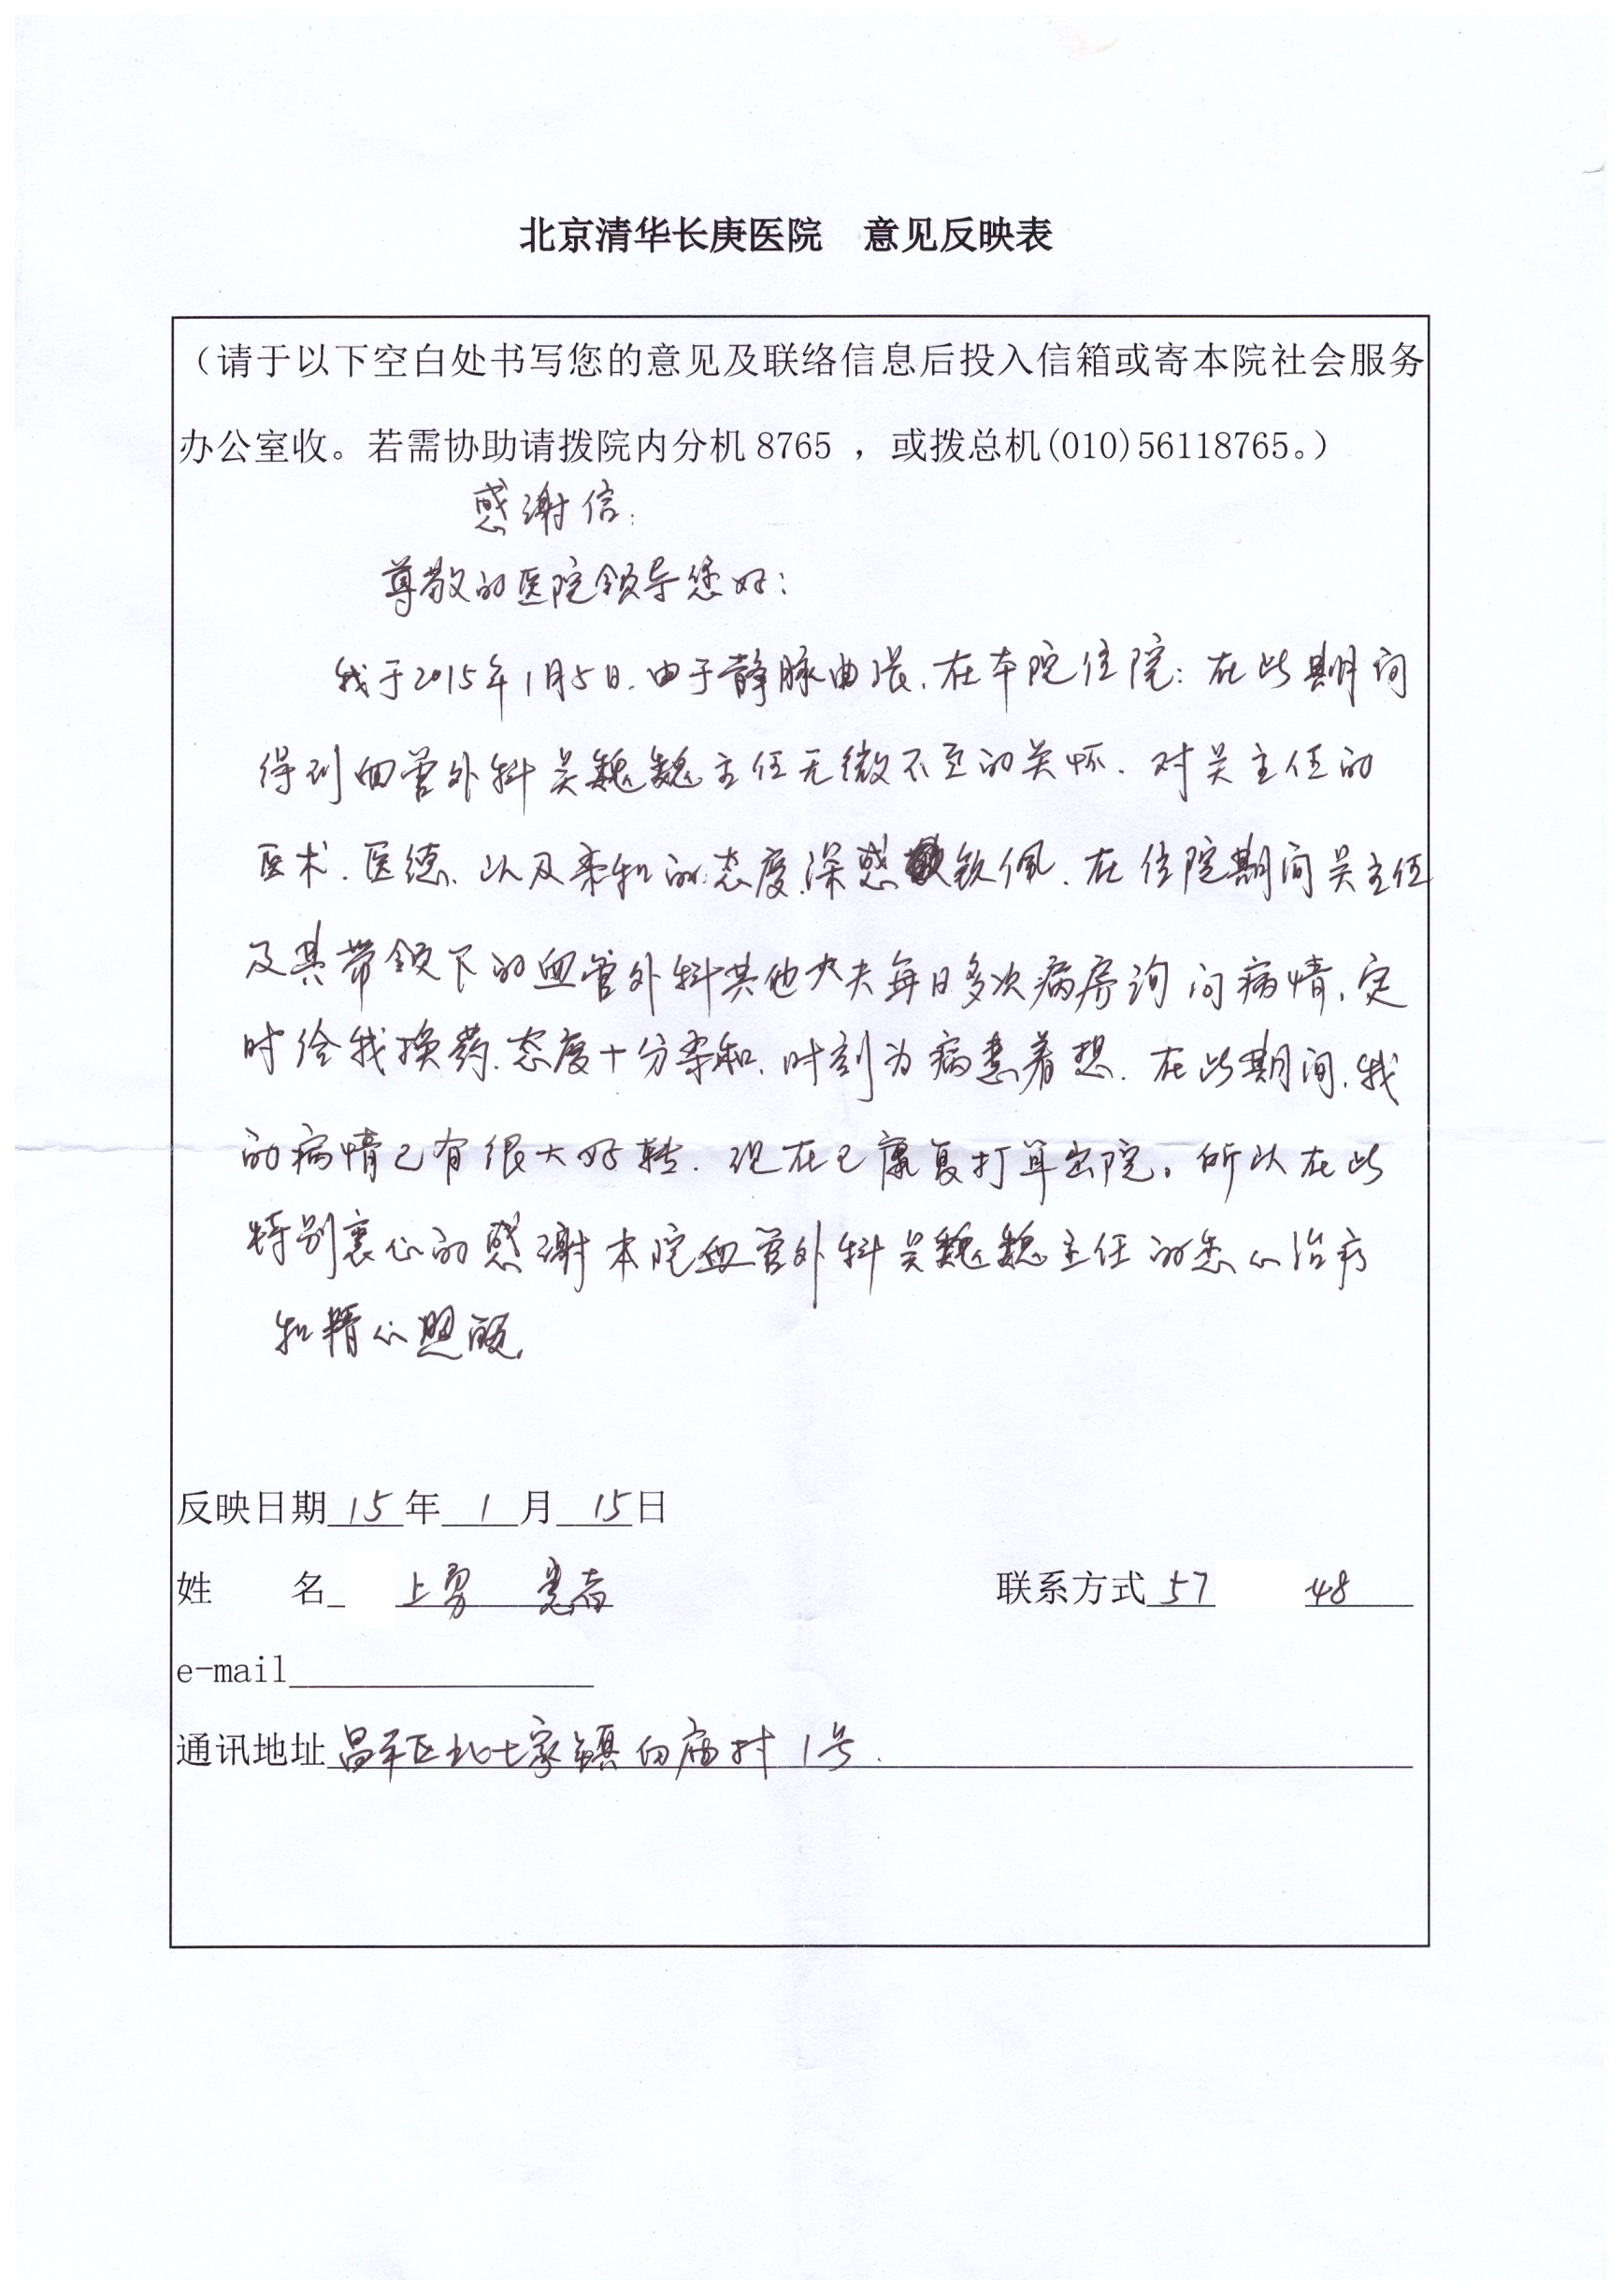 北京清华长庚医院 意见反映表
（请于以下空白处书写您的意见及联络信息后投入信箱或寄本院社会服务
办公室收。若需协助请拨院内分机 8765 ，或拨总机(010)56118765。）
感谢信:
尊敬的医院领导您好:
我于2015年1月5日.由于静脉曲张.在本院住院:在此期间
得到血管外科吴巍巍主任无微不至的关怀.对吴主任的
医术.医德.以及柔和的态度.深感钦佩.在住院期间吴主任
及其带领下的血管外科其他大夫每日多次病房询问病情.定
时给我换药.态度十分柔和.时刻为病患着想.在此期间.我
的病情已有很大好转.现在已康复打算出院。所以在此
特别衷心的感谢本院血管外科吴巍巍主任的悉心治疗
和精心照顾.
反映日期 15 年 1 月 15 日
姓 名 上勇 患者 联系方式 57 48
e-mail
通讯地址 昌平区北七家镇白庙村1号.